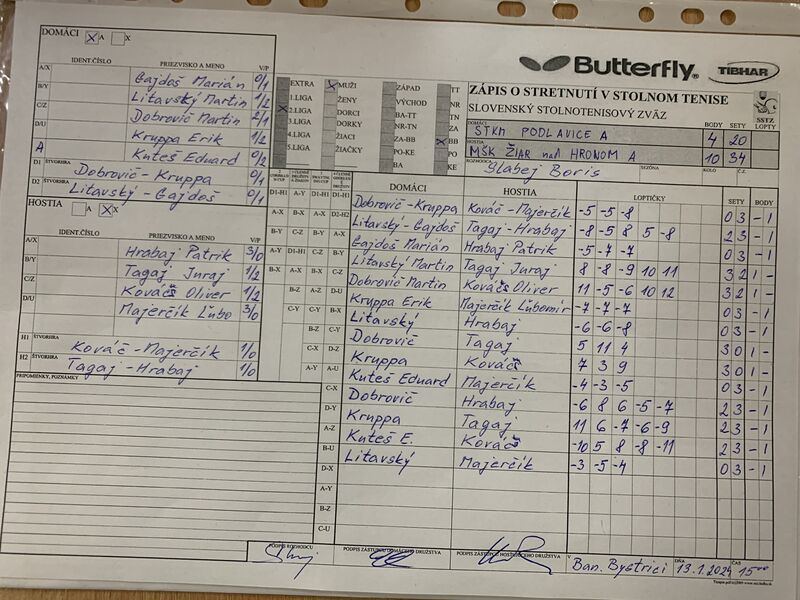 Butterfly
TIBHAR
ZÁPIS O STRETNUTÍ V STOLNOM TENISE
SLOVENSKÝ STOLNOTENISOVÝ ZVÄZ
SSTZ
BODY SETY LOPTY
DOMÁCI STKM PODLAVICE A 4 20
HOSTIA MŠK ŽIAR nad HRONOM A 10 34
ROZHODCA Slabej Boris SEZÓNA KOLO Č.Z.
DOMÁCI X A X
IDENT.ČÍSLO PRIEZVISKO A MENO V/P
A/X Gajdoš Marián 0/1
B/Y Litavský Martin 1/2
C/Z Dobrovič Martin 2/1
D/U Kruppa Erik 1/2
A Kuteš Eduard 0/2
D1 ŠTVORHRA Dobrovič - Kruppa 0/1
D2 ŠTVORHRA Litavský - Gajdoš 0/1
HOSTIA A X X
IDENT.ČÍSLO PRIEZVISKO A MENO V/P
A/X Hrabaj Patrik 3/0
B/Y Tagaj Juraj 1/2
C/Z Kováčš Oliver 1/2
D/U Majerčík Lubo 3/0
H1 ŠTVORHRA Kováč - Majerčík 1/0
H2 ŠTVORHRA Tagaj - Hrabaj 1/0
PRIPOMIENKY, POZNÁMKY
EXTRA X MUŽI ZÁPAD TT
1.LIGA ŽENY VÝCHOD NR
X 2.LIGA DORCI BA-TT ZA
3.LIGA DORKY NR-TN X BB
4.LIGA ŽIACI ZA-BB PO
5.LIGA ŽIAČKY PO-KE KE
BA
DOMÁCI HOSTIA LOPTIČKY SETY BODY
D1-H1 A-Y D1-H1 D1-H1 Dobrovič - Kruppa Kováč - Majerčík -5 -5 -8 0 3 - 1
A-X B-X A-X D2-H2 Litavský - Gajdoš Tagaj - Hrabaj -8 -5 8 5 -8 2 3 - 1
B-Y C-Z B-Y A-X Gajdoš Marián Hrabaj Patrik -5 -7 -7 0 3 - 1
A-Y D1-H1 C-Z B-Y Litavský Martin Tagaj Juraj 8 8 -9 10 11 3 2 1 -
B-X A-X B-X C-Z Dobrovič Martin Kováčš Oliver 11 -5 -6 10 12 3 2 1 -
B-Z A-Z D-U Kruppa Erik Majerčík Ľubomír -7 -7 -7 0 3 - 1
C-Y C-Y B-X Litavský Hrabaj -6 -6 -8 0 3 - 1
B-Z C-Y Dobrovič Tagaj 5 11 4 3 0 1 -
C-X D-Z Kruppa Kováčš 7 3 9 3 0 1 -
A-Y A-U Kuteš Eduard Majerčík -4 -3 -5 0 3 - 1
C-X Dobrovič Hrabaj -6 8 6 -5 -7 2 3 - 1
D-Y Kruppa Tagaj 11 6 -7 -6 -9 2 3 - 1
A-Z Kuteš E. Kováčš -10 5 8 -8 -11 2 3 - 1
B-U Litavský Majerčík -3 -5 -4 0 3 - 1
D-X
A-Y
B-Z
C-U
PODPIS ROZHODCU
PODPIS ZÁSTUPCU DOMÁCEHO DRUŽSTVA
PODPIS ZÁSTUPCU HOSŤUJÚCEHO DRUŽSTVA
V Ban. Bystrici DŇA 13.1.2024 ČAS 15⁰⁰